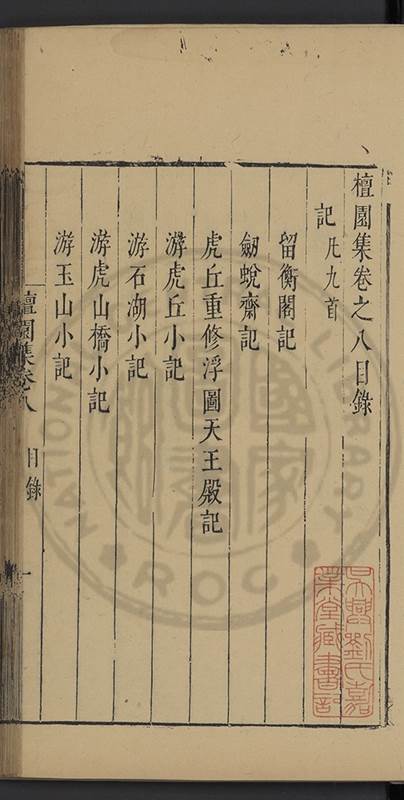 檀園集卷之八目錄
記凡九首
留衡閣記
劒蛻齋記
虎丘重修浮圖天王殿記
游虎丘小記
游石湖小記
游虎山橋小記
游玉山小記
檀園集卷八 目錄 一
吳興劉氏嘉
業堂藏書記
國家
NATION LIBRARY
ROC